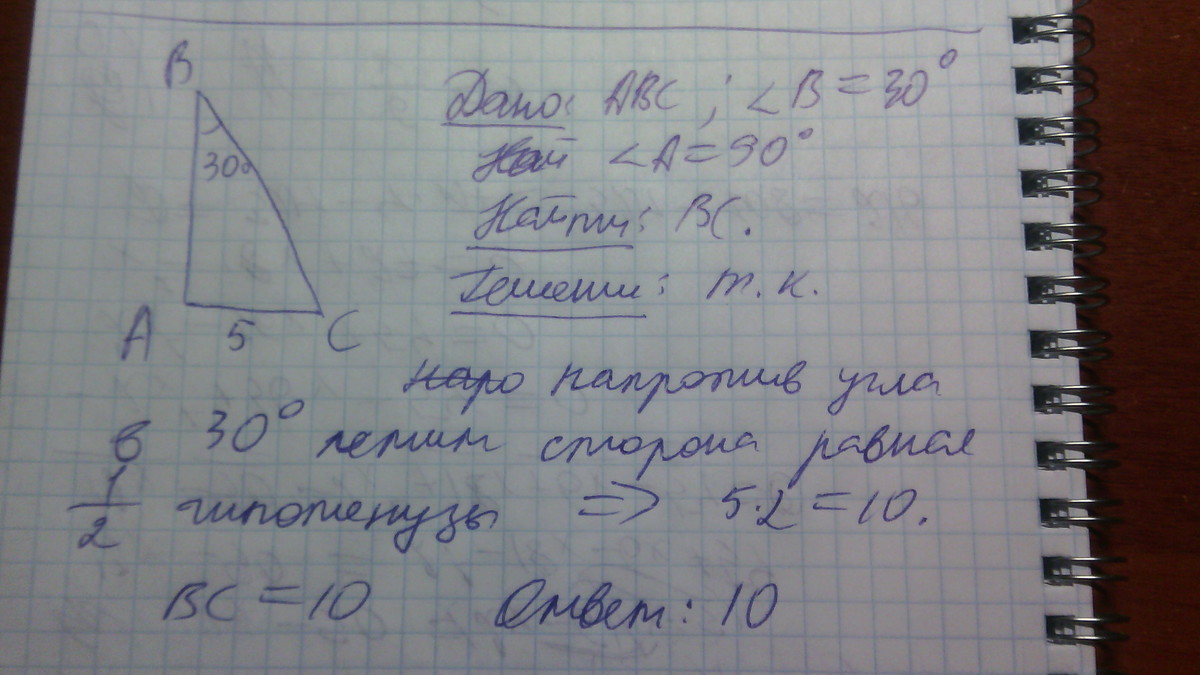 B
30°
A
5
C
Дано: ABC ; ∠B = 30°
∠A = 90°
Найти: BC.
Решени: т.к.
напротив угла
в 30° лежит сторона равная
1/2 гипотенузы => 5·2 = 10.
BC = 10 Ответ: 10